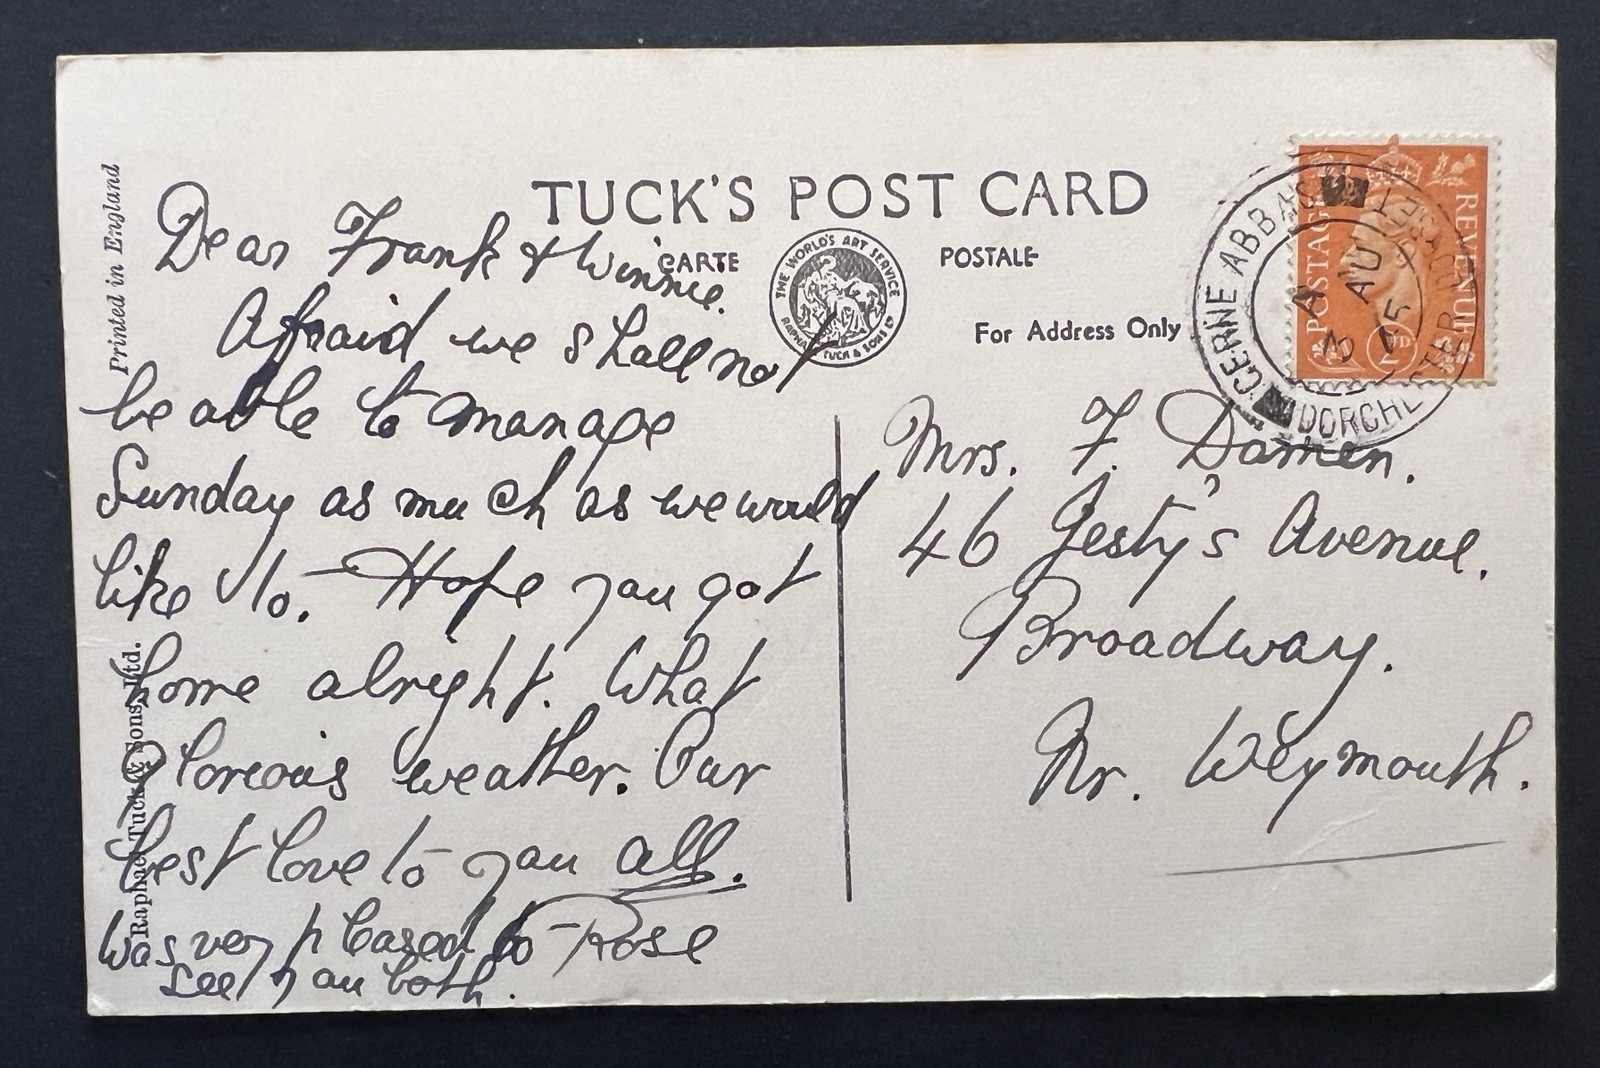 TUCK'S POST CARD
CARTE POSTALE
For Address Only
THE WORLD'S ART SERVICE
RAPHAEL TUCK & SONS LTD
Printed in England
Raphael Tuck & Sons, Ltd.
Dear Frank & Winnie.
Afraid we shall not
be able to manage
Sunday as much as we would
like to. Hope you got
home alright. What
glorious weather. Our
best love to you all.
Was very pleased to
see you both.
Rose
Mrs. F. Damen.
46 Jesty's Avenue.
Broadway.
Nr. Weymouth.
POSTAGE REVENUE
2D
CERNE ABBAS
DORCHESTER DORSET
A
AU